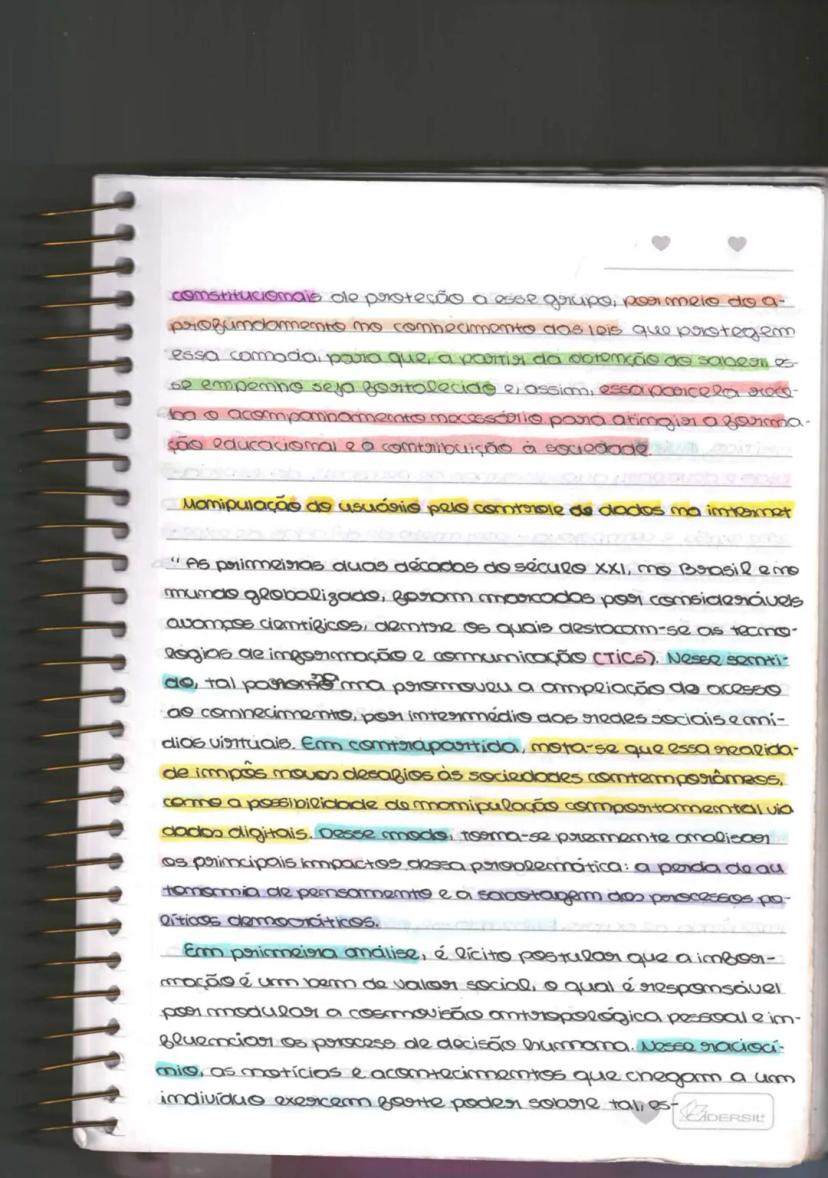 constitucionais de proteção a esse grupo, por meio do a-
profundamento no conhecimento das leis que protegem
essa camada, para que, a partir da obtenção do saber, es-
se empenho seja fortalecido e, assim, essa parcela rece-
ba o acompanhamento necessário para atingir a forma-
ção educacional e a contribuição à sociedade.
Manipulação do usuário pelo controle de dados na internet
"As primeiras duas décadas do século XXI, no Brasil e no
mundo globalizado, foram marcadas por consideráveis
avanços científicos, dentre os quais destacam-se as tecno-
logias de informação e comunicação (TICs). Nesse senti-
do, tal panorama promoveu a ampliação do acesso
ao conhecimento, por intermédio das redes sociais e mí-
dias virtuais. Em contrapartida, nota-se que essa realida-
de impôs novos desafios às sociedades contemporâneas,
como a possibilidade de manipulação comportamental via
dados digitais. Desse modo, torna-se premente analisar
os principais impactos dessa problemática: a perda de au
tonomia de pensamento e a sabotagem dos processos po-
líticos democráticos.
Em primeira análise, é lícito postular que a infor-
mação é um bem de valor social, o qual é responsável
por modular a cosmovisão antropológica pessoal e in-
fluenciar os processo de decisão humana. Nesse raciocí-
nio, as notícias e acontecimentos que chegam a um
indivíduo exercem forte poder sobre tal, es-